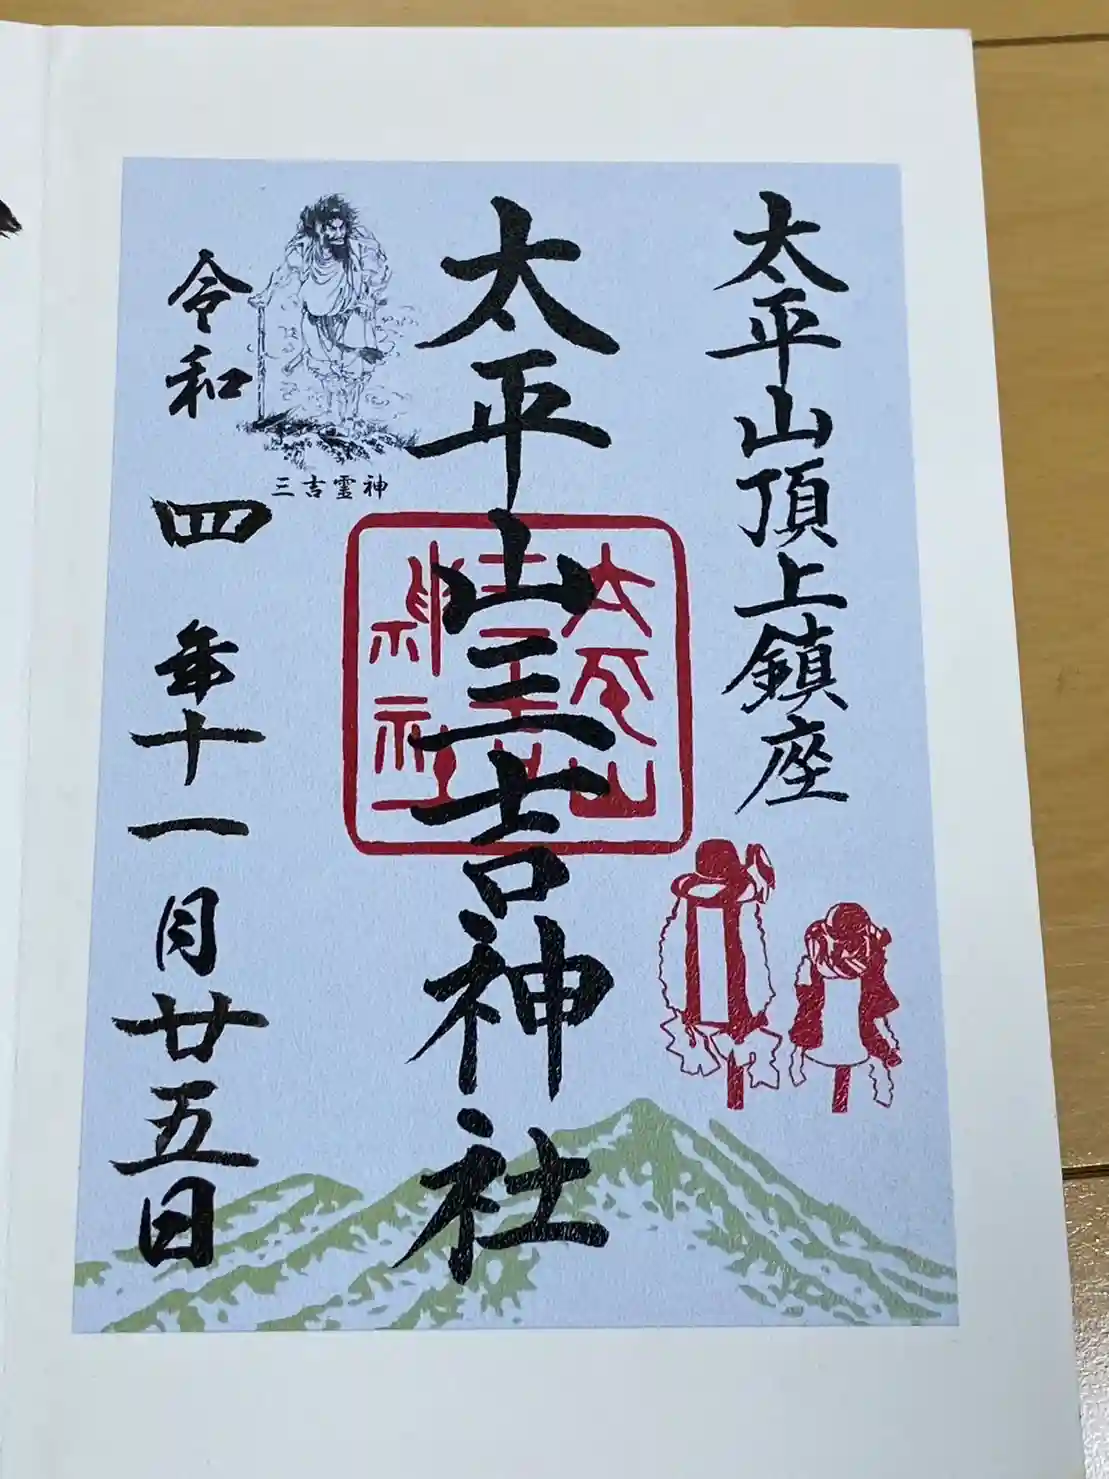 太平山頂上鎮座
太平山三吉神社
太平山
三吉
神社
三吉霊神
令和四年十一月廿五日